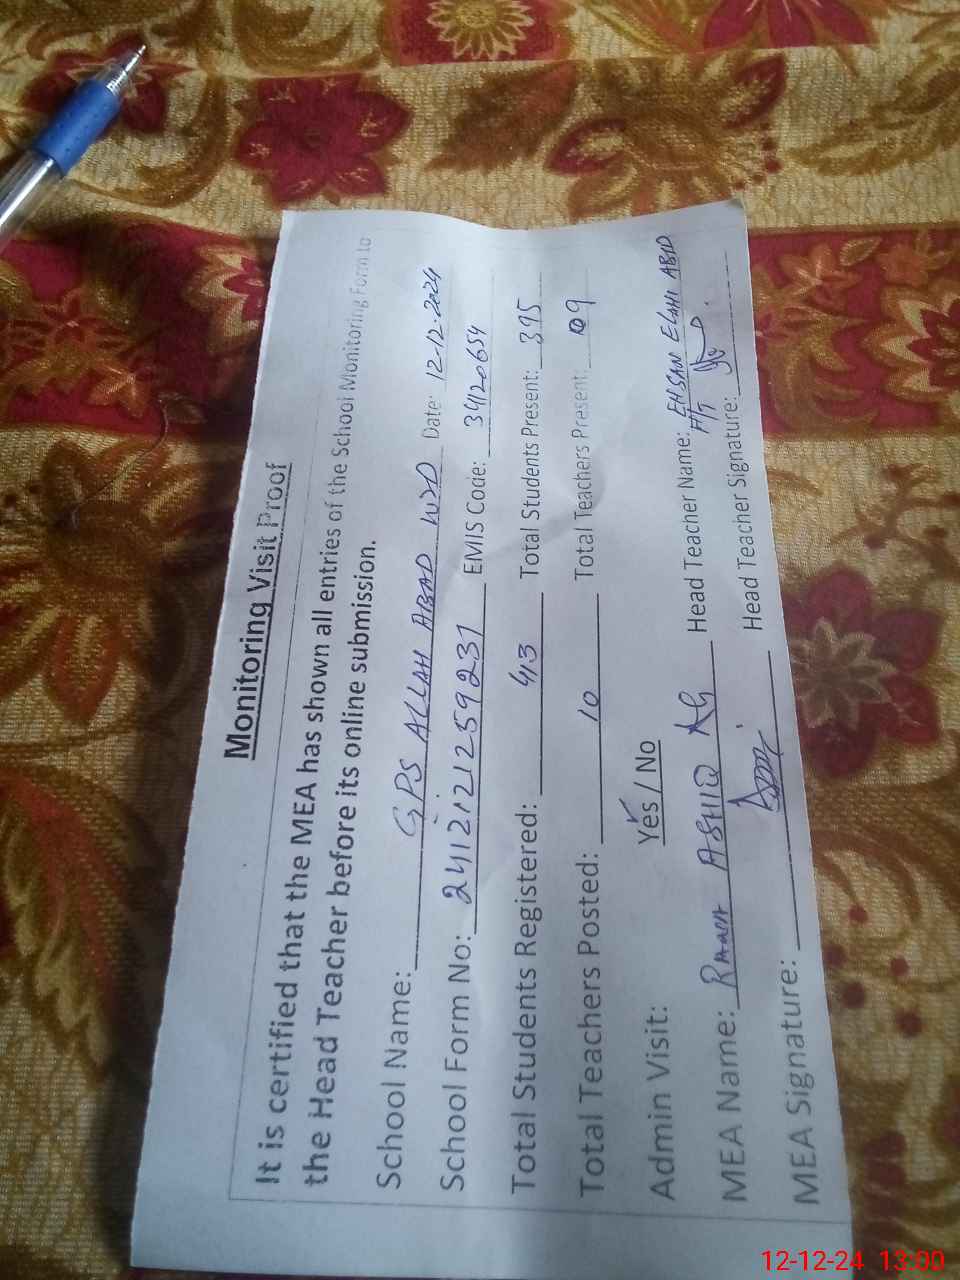 Monitoring Visit Proof
It is certified that the MEA has shown all entries of the School Monitoring Form to
the Head Teacher before its online submission.
School Name: GPS ALLAH ABAD WZD Date: 12-12-2024
School Form No: 2412121259231 EMIS Code: 34120654
Total Students Registered: 413 Total Students Present: 395
Total Teachers Posted: 10 Total Teachers Present: 09
Admin Visit: Yes / No
MEA Name: ASHIQ Head Teacher Name: EHSAN ELAHI ABID
H/T
MEA Signature: Head Teacher Signature:
12-12-24 13:00